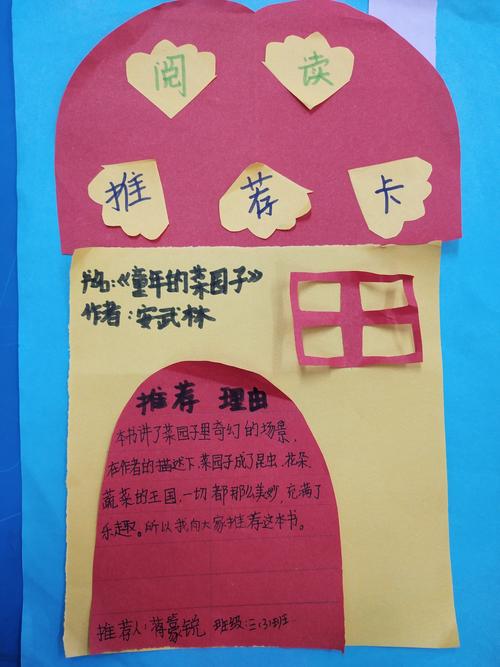 阅读
推荐卡
书名:《童年的菜园子》
作者:安武林
推荐 理由
本书讲了菜园子里奇幻的场景,
在作者的描述下,菜园子成了昆虫、花朵、
蔬菜的王国,一切都那么美妙,充满了
乐趣。所以我向大家推荐这本书。
推荐人:蒋蒙锐 班级:三(3)班